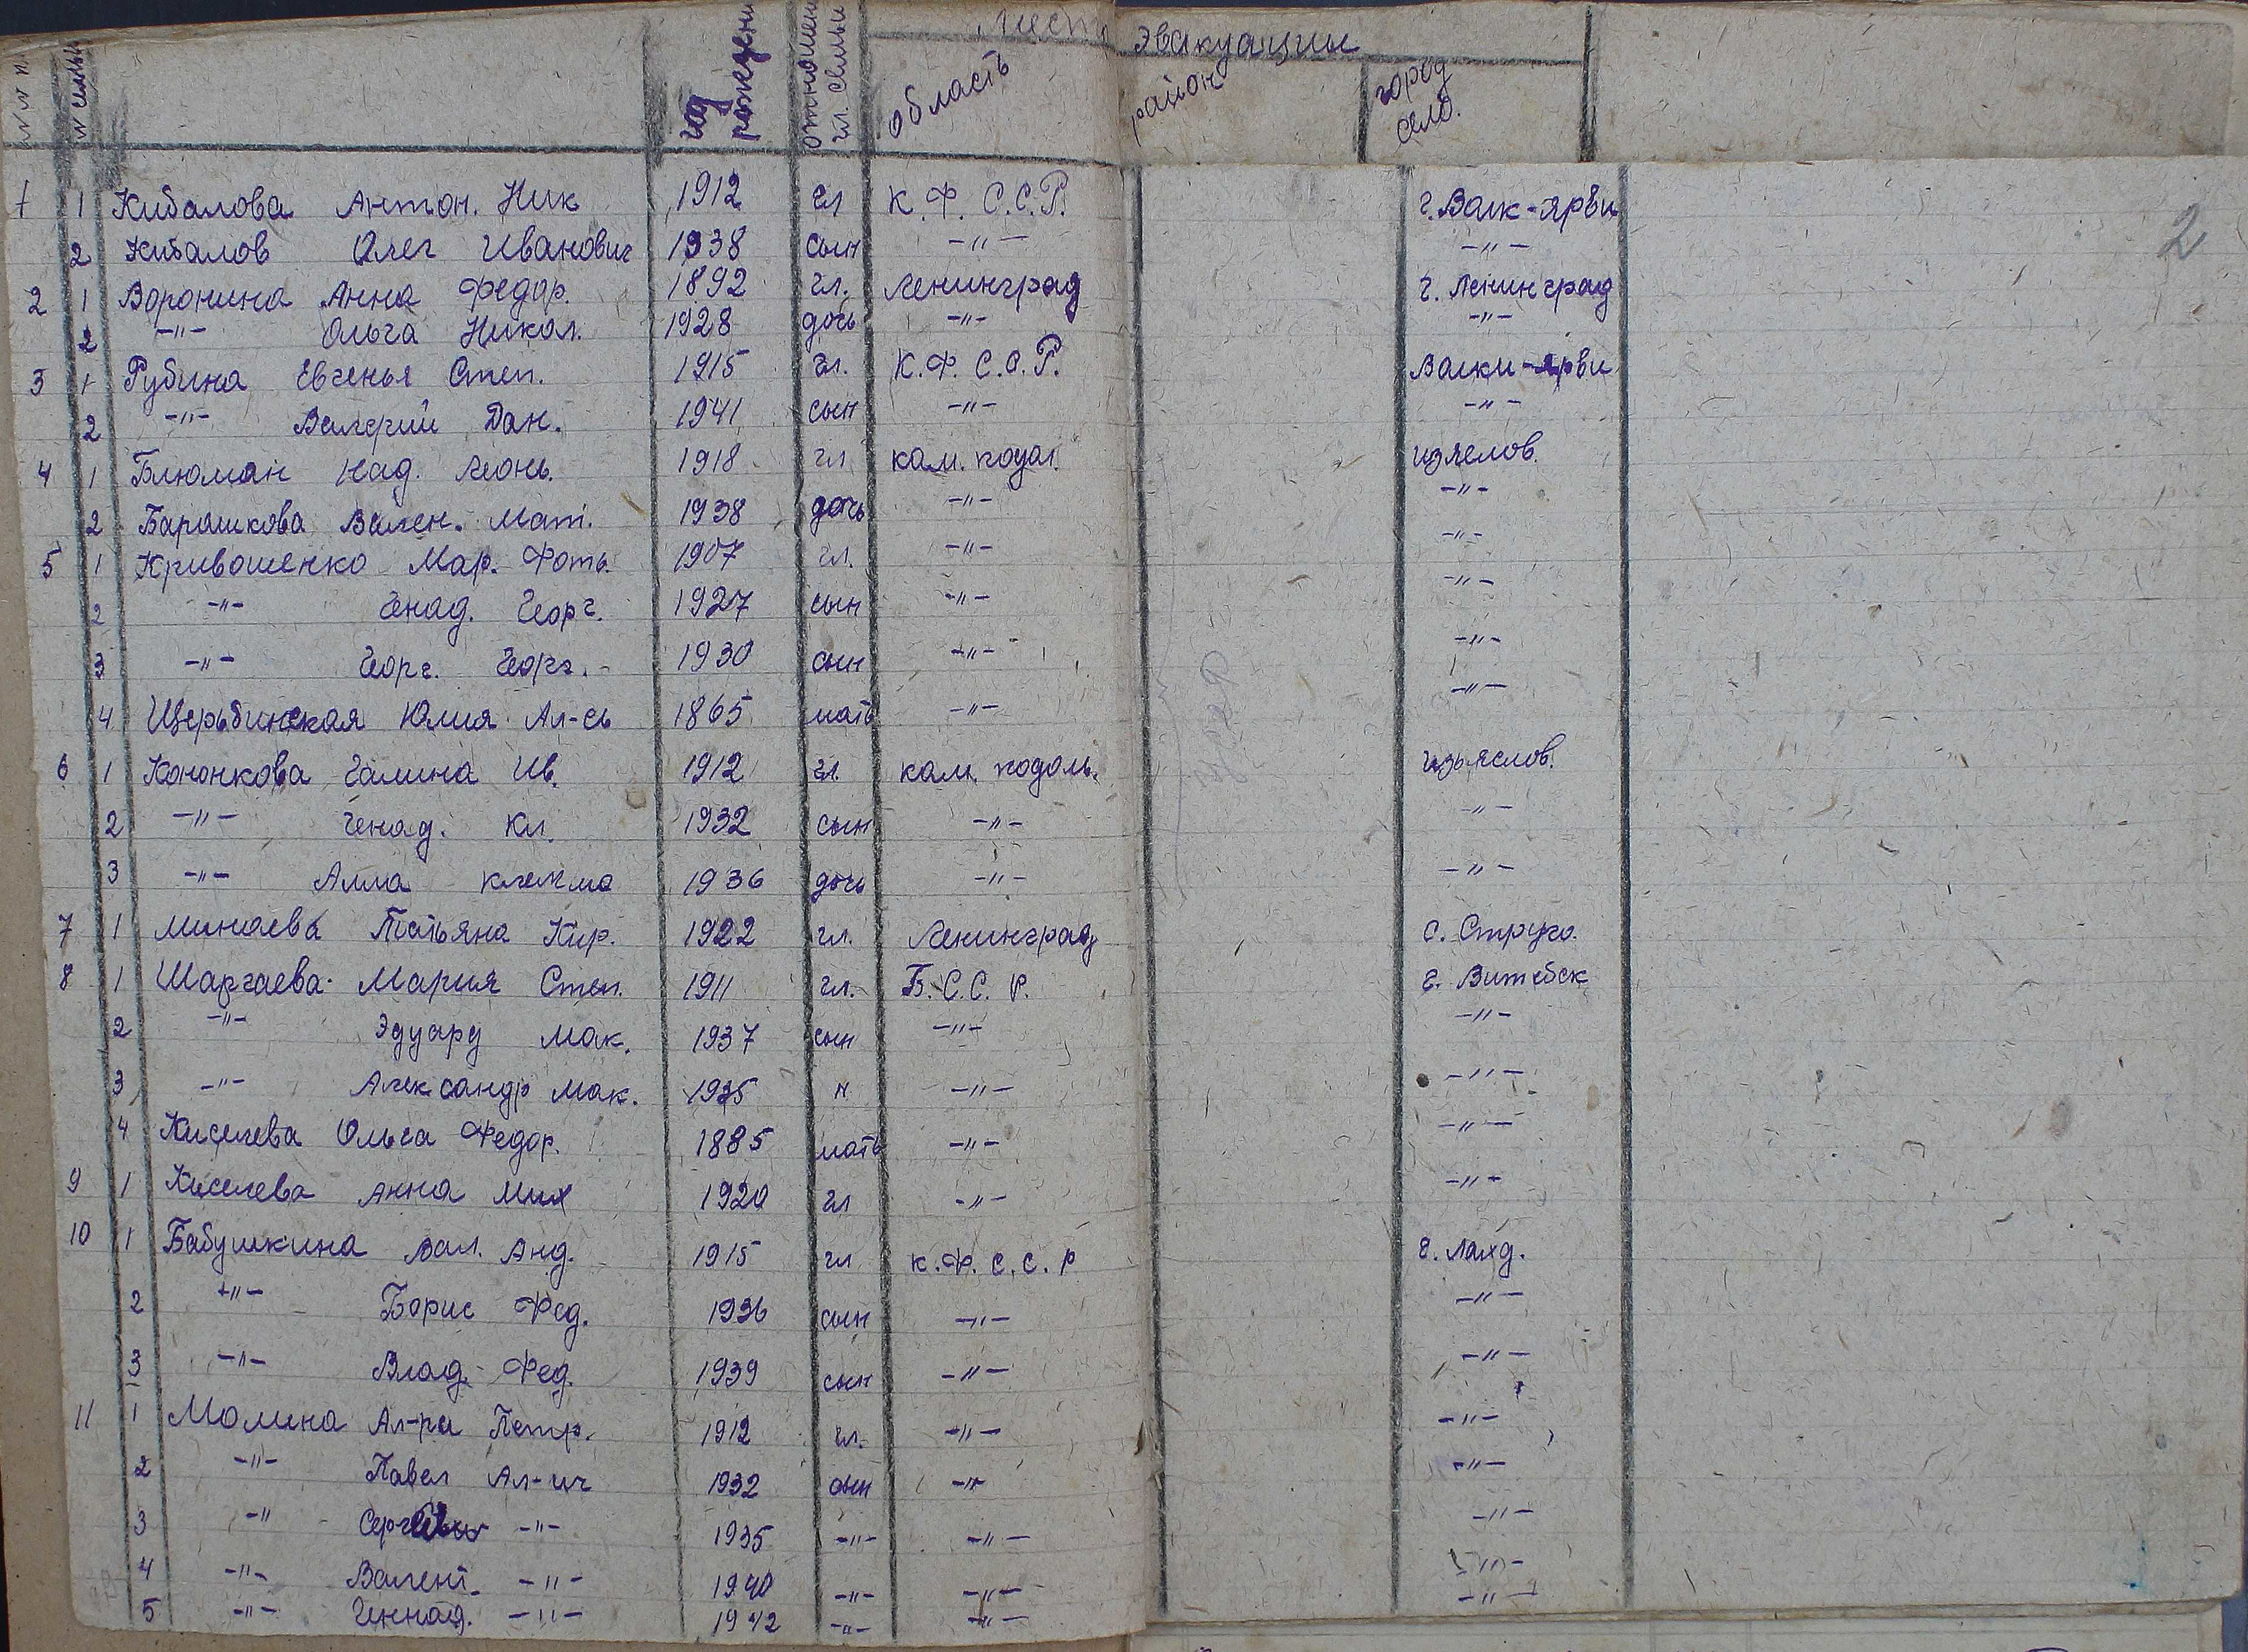 мест эвакуации
№№ п. № семьи год рожден отношен гл. семьи область район город село.
1 1 Кибалова Антон. Ник 1912 гл К.Ф. С.С.Р. г. Валк-ярви
2 Кибалов Олег Иванович 1938 сын -"- -"-
2 1 Воронина Анна Федор. 1892 гл. Ленинград г. Ленинград
2 -"- Ольга Никол. 1928 дочь -"- -"-
3 1 Рубина Евгенья Степ. 1915 гл. К.Ф. С.С.Р. Валки-ярви
2 -"- Валерий Дан. 1941 сын -"- -"-
4 1 Блюман Над. Леонь. 1918 гл кам. подол. изяслов.
2 Барашкова Вален. Мат. 1938 дочь -"- -"-
5 1 Кривошенко Мар. Фоть. 1907 гл. -"- -"-
2 -"- Генад. Георг. 1927 сын -"- -"-
3 -"- Георг. Георг. 1930 сын -"- -"-
4 Щербинская Юлия Ал-сь 1865 мать -"- -"-
6 1 Кононкова Галина Ив. 1912 гл. кам. подоль. изъяслов.
2 -"- Генад. Кл. 1932 сын -"- -"-
3 -"- Алла Клемма 1936 дочь -"- -"-
7 1 Минаева Татьяна Кир. 1922 гл. Ленинград с. Струго.
8 1 Шаргаева Мария Степ. 1911 гл. Б.С.С.Р. г. Витебск
2 -"- Эдуард Мак. 1937 сын -"- -"-
3 -"- Александр Мак. 1935 " -"- -"-
4 Киселева Ольга Федор. 1885 мать -"- -"-
9 1 Киселева Анна Мих 1920 гл -"- -"-
10 1 Бабушкина Вал. Анд. 1915 гл К.Ф.С.С.Р г. Лахд.
2 -"- Борис Фед. 1936 сын -"- -"-
3 -"- Влад. Фед. 1939 сын -"- -"-
11 1 Молина Ал-ра Петр. 1912 гл. -"- -"-
2 -"- Павел Ал-ич 1932 сын -"- -"-
3 -" Сергей -"- 1935 -"- -"- -"-
4 -"- Валент. -"- 1940 -"- -"- -"-
5 -"- Геннад. -"- 1942 -"- -"- -"-
2